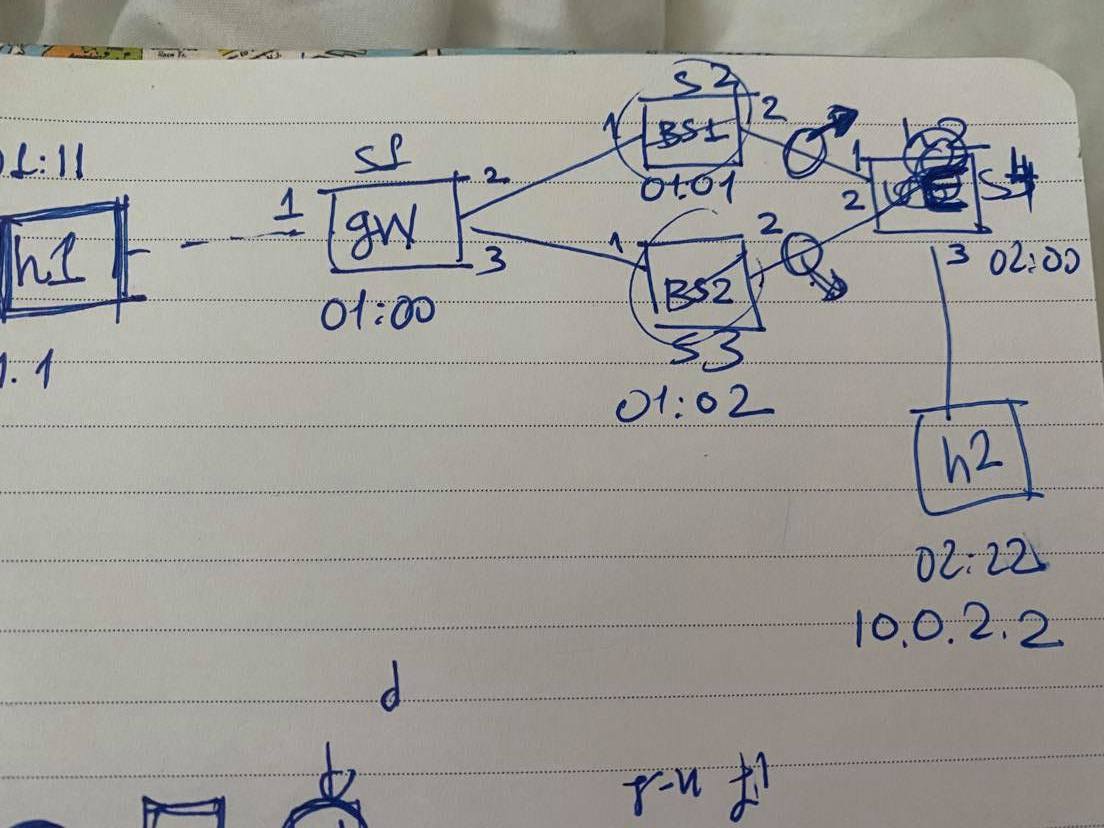 1:11
h1
1.1
S1
1
gW
2
3
01:00
S2
1
BS1
2
01:01
1
BS2
2
S3
01:02
1
2
S4
3
02:00
h2
02:22
10.0.2.2
d